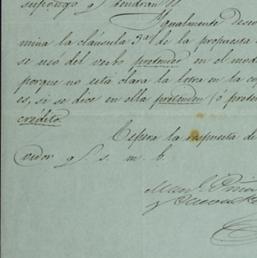 supongo q. tendrán
Igualmente Deseo
mina la cláusula 3ª de la propuesta
se usó del verbo pretender en el mod
porque no está clara la letra en la co
es, si se dice en ella pretenden (ó prete
crédito.
Espera la respuesta de
vidor q. s. m. b.